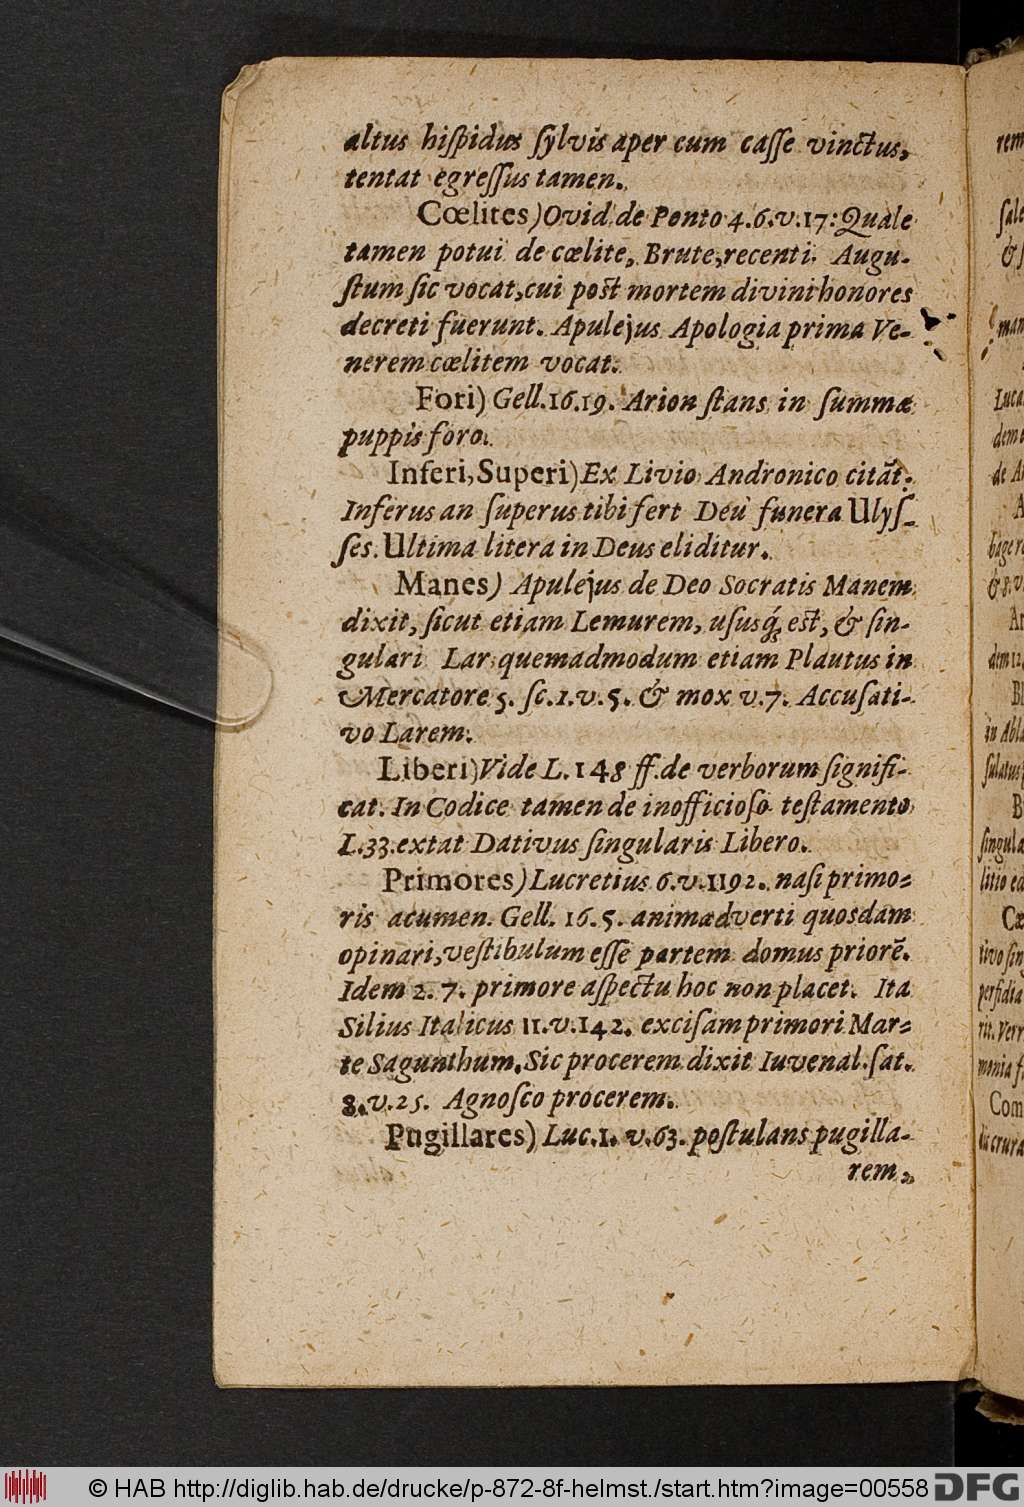 altus hiſpidus ſylvis aper cum caſſe vinctus,
tentat egreſſus tamen.
Cœlites) Ovid. de Ponto 4.6.v.17: Quale
tamen potui de cœlite, Brute, recenti. Augu-
ſtum ſic vocat, cui poſt mortem divini honores
decreti fuerunt. Apulejus Apologia prima Ve-
nerem cœlitem vocat.
Fori) Gell. 16.19. Arion ſtans in ſummæ
puppis foro.
Inferi, Superi) Ex Livio Andronico citãt.
Inferus an ſuperus tibi fert Deù funera Ulyſ-
ſes. Ultima litera in Deus eliditur.
Manes) Apulejus de Deo Socratis Manem
dixit, ſicut etiam Lemurem, uſusq́; eſt, & ſin-
gulari Lar, quemadmodum etiam Plautus in
Mercatore 5. ſc.1.v.5. & mox v.7. Accuſati-
vo Larem.
Liberi) Vide L. 148 ff. de verborum ſignifi-
cat. In Codice tamen de inofficioſo teſtamento
L.33. extat Dativus ſingularis Libero.
Primores) Lucretius 6.v.1192. naſi primo-
ris acumen. Gell. 16.5. animadverti quosdam
opinari, veſtibulum eſſe partem domus priorẽ.
Idem 2.7. primore aſpectu hoc non placet. Ita
Silius Italicus 11.v.142. exciſam primori Mar-
te Sagunthum. Sic procerem dixit Iuvenal. ſat.
8.v.25. Agnoſco procerem.
Pugillares) Luc.1. v.63. poſtulans pugilla-
rem,
rem
ſale
& ſ
man
Luca
deme
de A
A
bage re
& 8. v.
Ar
dem 12.
Bl
in Abla
ſulatus
B
ſingula
litio ed
Cæ
tivo ſin
perfidia
rit. Verr
monia f
Com
dit crura
© HAB http://diglib.hab.de/drucke/p-872-8f-helmst./start.htm?image=00558 DFG